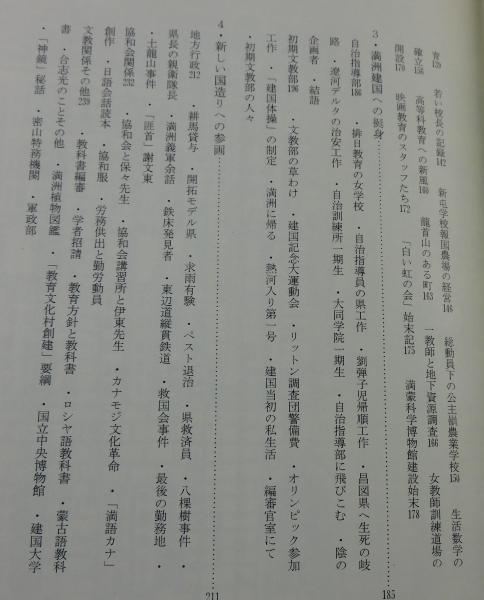 育126 若い校長の記録142 新屯学校報国農場の経営146 総動員下の公主嶺農業学校150 生活数学の
確立156 高等科教育への新風160 龍首山のある町163 一教師と地下資源調査166 女教師訓練道場の
開設170 映画教育のスタッフたち172 「白い虹の会」始末記175 満蒙科学博物館建設始末178
3・満洲建国への挺身 185
自治指導部186 ・排日教育の女学校 ・自治指導員の県工作 ・劉弾子児帰順工作 ・昌図県へ生死の岐
路 ・遼河デルタの治安工作 ・自治訓練所一期生 ・大同学院一期生 ・自治指導部に飛びこむ ・陰の
企画者 ・結語
初期文教部196 ・文教部の草わけ ・建国記念大運動会 ・リットン調査団警備費 ・オリンピック参加
工作 ・「建国体操」の制定 ・満洲に帰る ・熱河入り第一号 ・建国当初の私生活 ・編審官室にて
・初期文教部の人々
4・新しい国造りへの参画 211
地方行政212 ・耕馬貸与 ・開拓モデル県 ・求雨有験 ・ペスト退治 ・県救済員 ・八棵樹事件 ・
県長の親衛隊長 ・満洲義軍余話 ・鉄床発見者 ・東辺道縦貫鉄道 ・救国会事件 ・最後の勤務地 ・
・土龍山事件 ・「匪首」謝文東
協和会関係232 ・協和会と保々先生 ・協和会講習所と伊東先生 ・カナモジ文化革命 ・「満語カナ」
創作 ・日語会話読本 ・協和服 ・労務供出と勤労動員
文教関係その他239 ・教科書編審 ・学者招請 ・教育方針と教科書 ・ロシヤ語教科書 ・蒙古語教科
書 ・合志光のことその他 ・満洲植物図鑑 ・「教育文化村創建」要綱 ・国立中央博物館 ・建国大学
・「神鏡」秘話 ・密山特務機関 ・軍政部